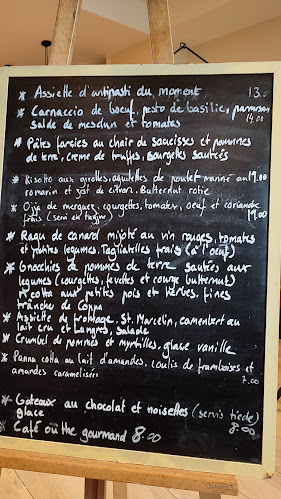 * Assiette d'antipasti du moment 13.-
* Carnaccio de boeuf, pesto de basilic, parmesan
salde de mesclun et tomates 14.00
* Pâtes farcies au chair de saucisses et pommes
de terre, creme de truffes, courgettes sautées
* Risotto aux girolles, aiguilletes de poulet mariné au 19.00
romarin et zest de citron. Butternut rotie
* Ojja de merguez, courgettes, tomates, oeuf et coriandre
frais (servi en tagine) 19.00
* Ragu de canard mijoté au vin rouges, tomates
et petites legumes. Tagliatelles frais (à l'oeuf)
* Gnocchies de pommes de terre sautées aux
legumes (courgettes, fevettes et courge butternut)
Ricotta aux petites pois et herbes, fines
tranche de Coppa
* Assiette de fromage. St. Marcelin, camembert au
lait cru et Langres, Salade
* Crumbel de pommes et myrtilles, glace vanille
* Panna cotta au lait d'amandes, coulis de framboises et
amandes caramelisées 7.00
* Gateaux au chocolat et noisettes (servis tiede)
glace 8.00
* Café ou thé gourmand 8.00